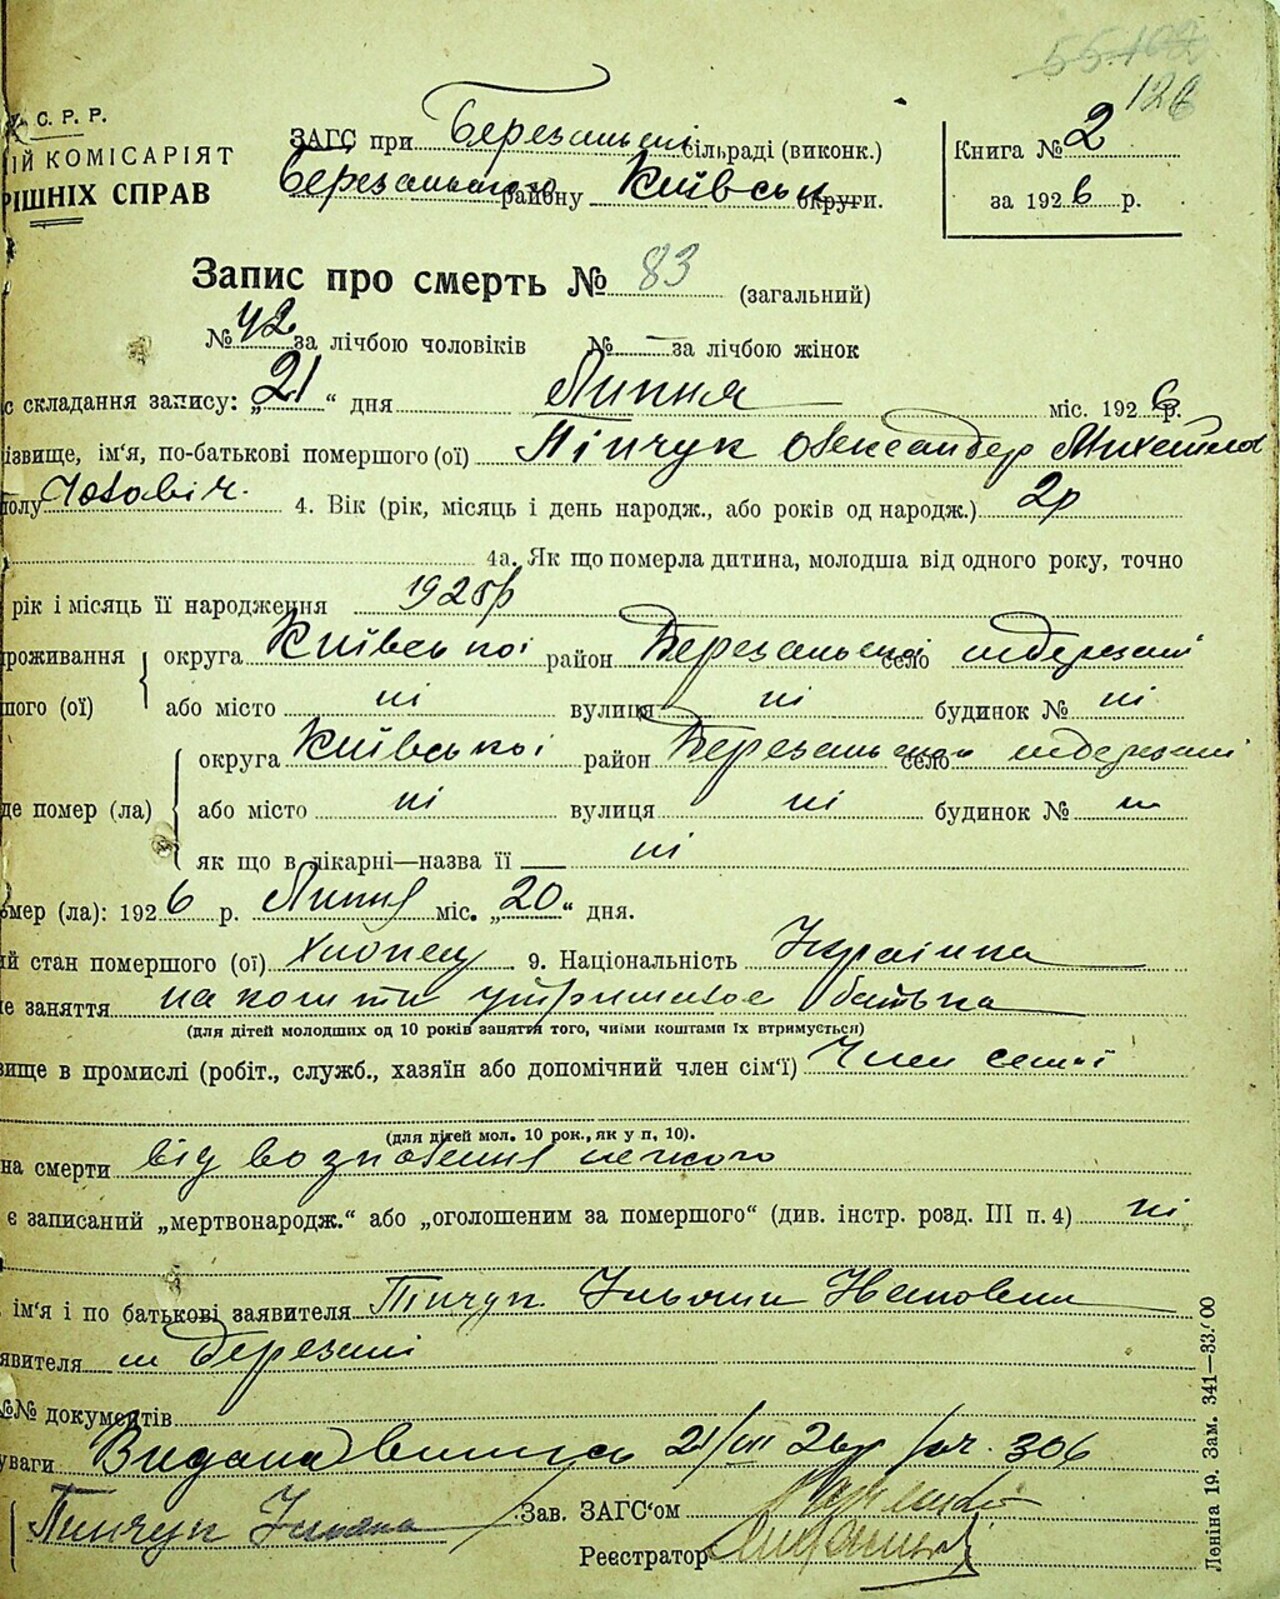 55.102
126
У. С. Р. Р.
ІЙ КОМІСАРІЯТ
РІШНІХ СПРАВ
ЗАГС при Березанській сільраді (виконк.)
Березанського району Київськ округи.
Книга № 2
за 1926 р.
Запис про смерть № 83 (загальний)
№ 42 за лічбою чоловіків № — за лічбою жінок
с складання запису: „21“ дня Липня міс. 1926 р.
ізвище, ім'я, по-батькові помершого (ої) Пінчук Олександер Михайлов
полу Чоловіч. 4. Вік (рік, місяць і день народж., або років од народж.) 2р
4а. Як що померла дитина, молодша від одного року, точно
рік і місяць її народження 1925р
роживання округа Київської район Березанської село мБерезані
шого (ої) або місто ні вулиця ні будинок № ні
округа Київської район Березансько село мБерезані
де помер (ла) або місто ні вулиця ні будинок № ні
як що в лікарні—назва її ні
омер (ла): 1926 р. Липня міс. „20“ дня.
ий стан помершого (ої) хлопец 9. Національність Українка
е заняття на кошти батька
(для дітей молодших од 10 років заняття того, чиїми коштами їх втримується)
вище в промислі (робіт., служб., хазяїн або допомічний член сім'ї) Член семії
(для дітей мол. 10 рок., як у п, 10).
на смерти від легкого
є записаний „мертвонародж.“ або „оголошеним за помершого“ (див. інстр. розд. III п. 4) ні
ім'я і по батькові заявителя Пінчук
явителя м Березані
№№ документів
уваги Видана випись 21/VII 26р 306
Пинчук
Зав. ЗАГС'ом
Реєстратор
Леніна 19. Зам. 341—33.00